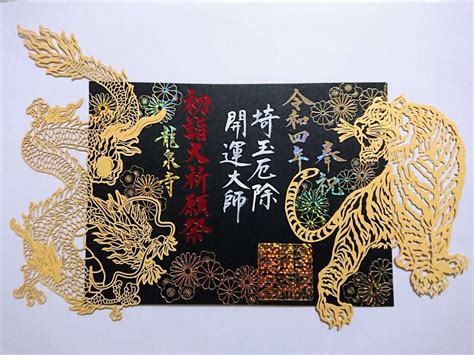 奉祝
令和四年
埼玉厄除
開運大師
初詣大祈願祭
龍泉寺